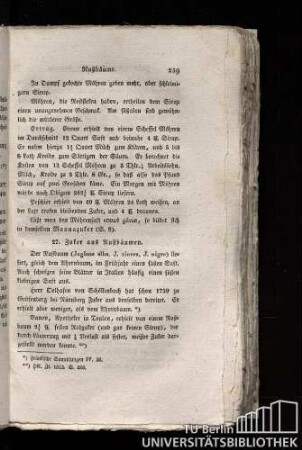 Nußbäume. 259
In Dampf gekochte Möhren geben mehr, aber schleimi-
gern Sirup.
Möhren, die Rostflecken haben, ertheilen dem Sirup
einen unangenehmen Geschmack. Am süßesten sind gewöhn-
lich die mittlerer Größe.
Ertrag. Siron erhielt von einem Scheffel Möhren
im Durchschnitt 12 Quart Saft und beinahe 4 ℔ Sirup.
Er nahm hiezu Quart Milch zum Klären, und 5 bis
6 Loth Kreide zum Sättigen der Säure. Er berechnet die
Kosten von 12 Scheffel Möhren zu 3 Thlr., Arbeitslohn,
Milch, Kreide zu 2 Thlr. 6 Gr., so daß also das Pfund
Sirup auf zwei Groschen käme. Ein Morgen mit Möhren
würde nach Obigem ℔ Sirup liefern.
erhielt von 40 ℔ Möhren 24 Loth weißen, an
der Luft trocken bleibenden Zuker, und 4 ℔ braunen.
Läßt man den Möhrensaft etwas gären, so bildet sich
in demselben Mannazuker (S. 8).
27. Zuker aus Nußbäumen.
Der Nußbaum (Juglans alba, J. cinerea, J. nigra) lie-
fert, gleich dem Ahornbaum, im Frühjahr einen süßen Saft.
Auch schwitzen seine Blätter in Italien häufig einen süßen
klebrigen Saft aus.
Herr Oelhafen von Schöllenbach hat schon 1759 zu
bei Nürnberg Zuker aus demselben bereitet. Er
erhielt aber weniger, als von dem Ahornbaum. *)
Banon, Apotheker in Toulon, erhielt von einem Nuß-
baum 2½ ℔ festen Rohzuker (und gar keinen Sirup), der
durch Läuterung mit Verlust als fester, weißer Zuker dar-
gestellt werden konnte. **)
*) Fränkische Sammlungen IV.
**)
TU Berlin
UNIVERSITÄTSBIBLIOTHEK